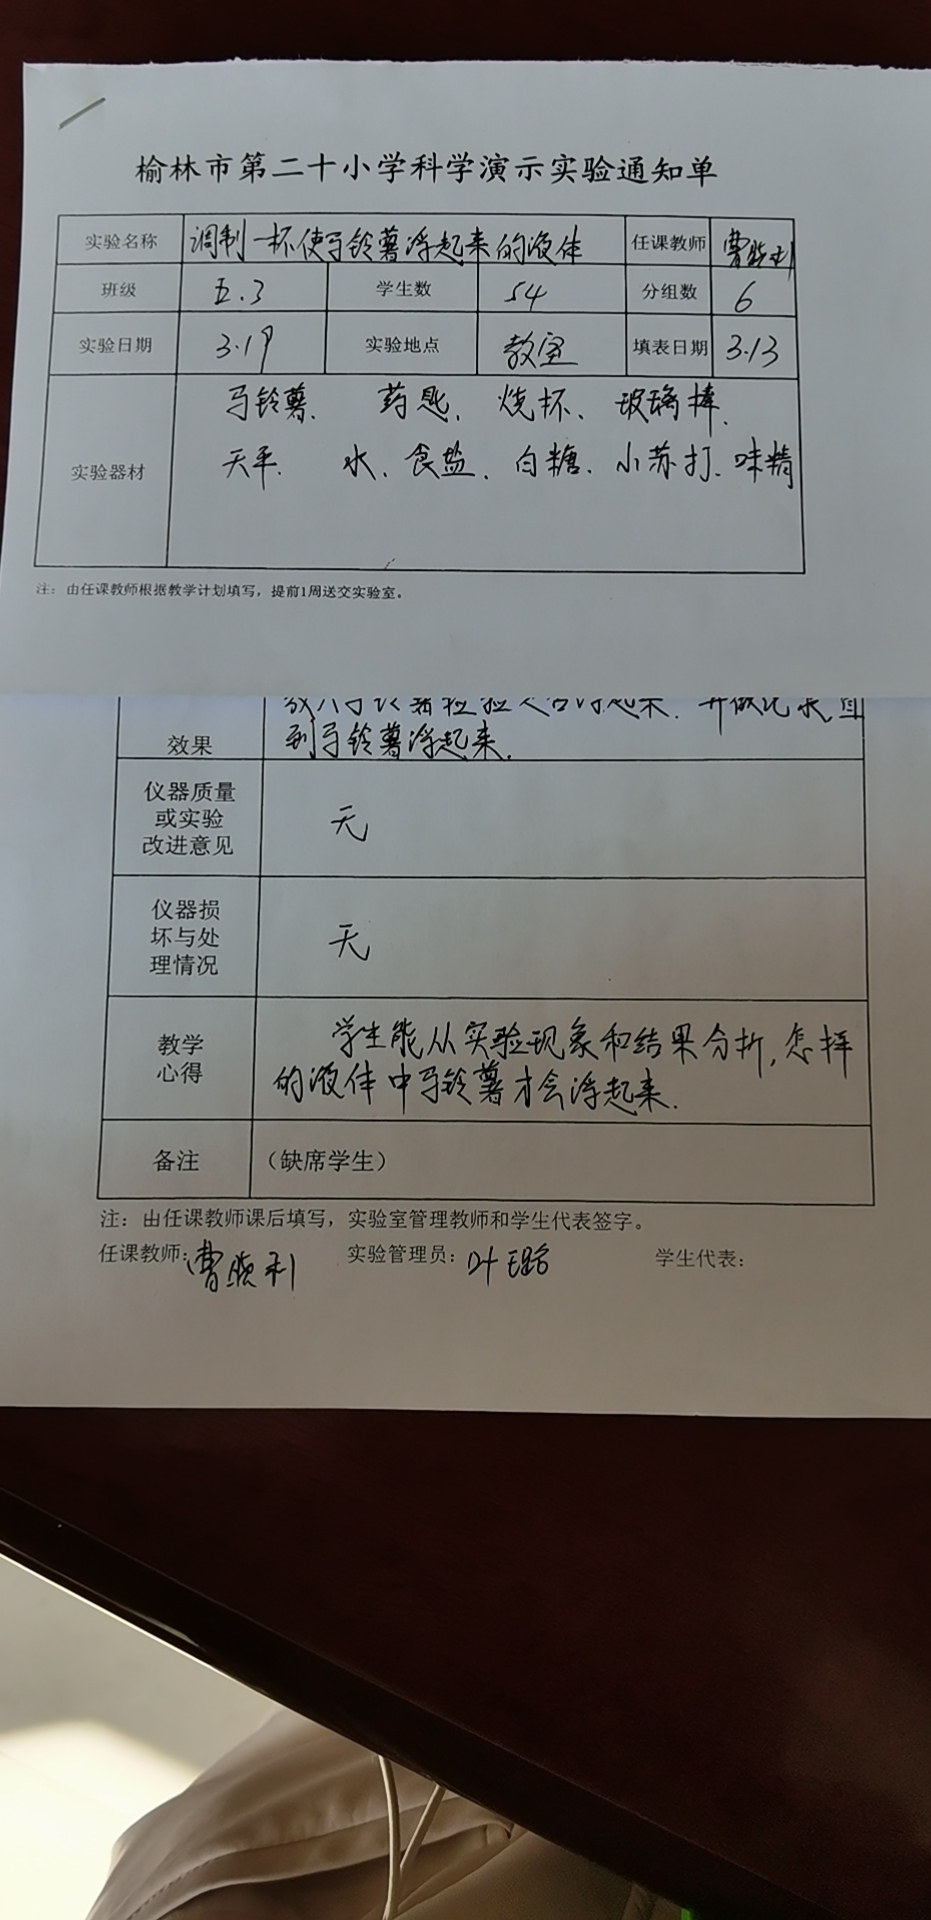 榆林市第二十小学科学演示实验通知单
实验名称 调制一杯使马铃薯浮起来的液体 任课教师 曹晓利
班级 五.3 学生数 54 分组数 6
实验日期 3.19 实验地点 教室 填表日期 3.13
马铃薯、 药匙、 烧杯、 玻璃棒、
实验器材 天平、 水、食盐、白糖、小苏打、味精
注：由任课教师根据教学计划填写，提前1周送交实验室。
放入马铃薯检验是否浮起来.并做记录直
效果 到马铃薯浮起来.
仪器质量
或实验 无
改进意见
仪器损
坏与处 无
理情况
教学 学生能从实验现象和结果分析,怎样
心得 的液体中马铃薯才会浮起来.
备注 （缺席学生）
注：由任课教师课后填写，实验室管理教师和学生代表签字。
任课教师：曹晓利 实验管理员：叶璐 学生代表：